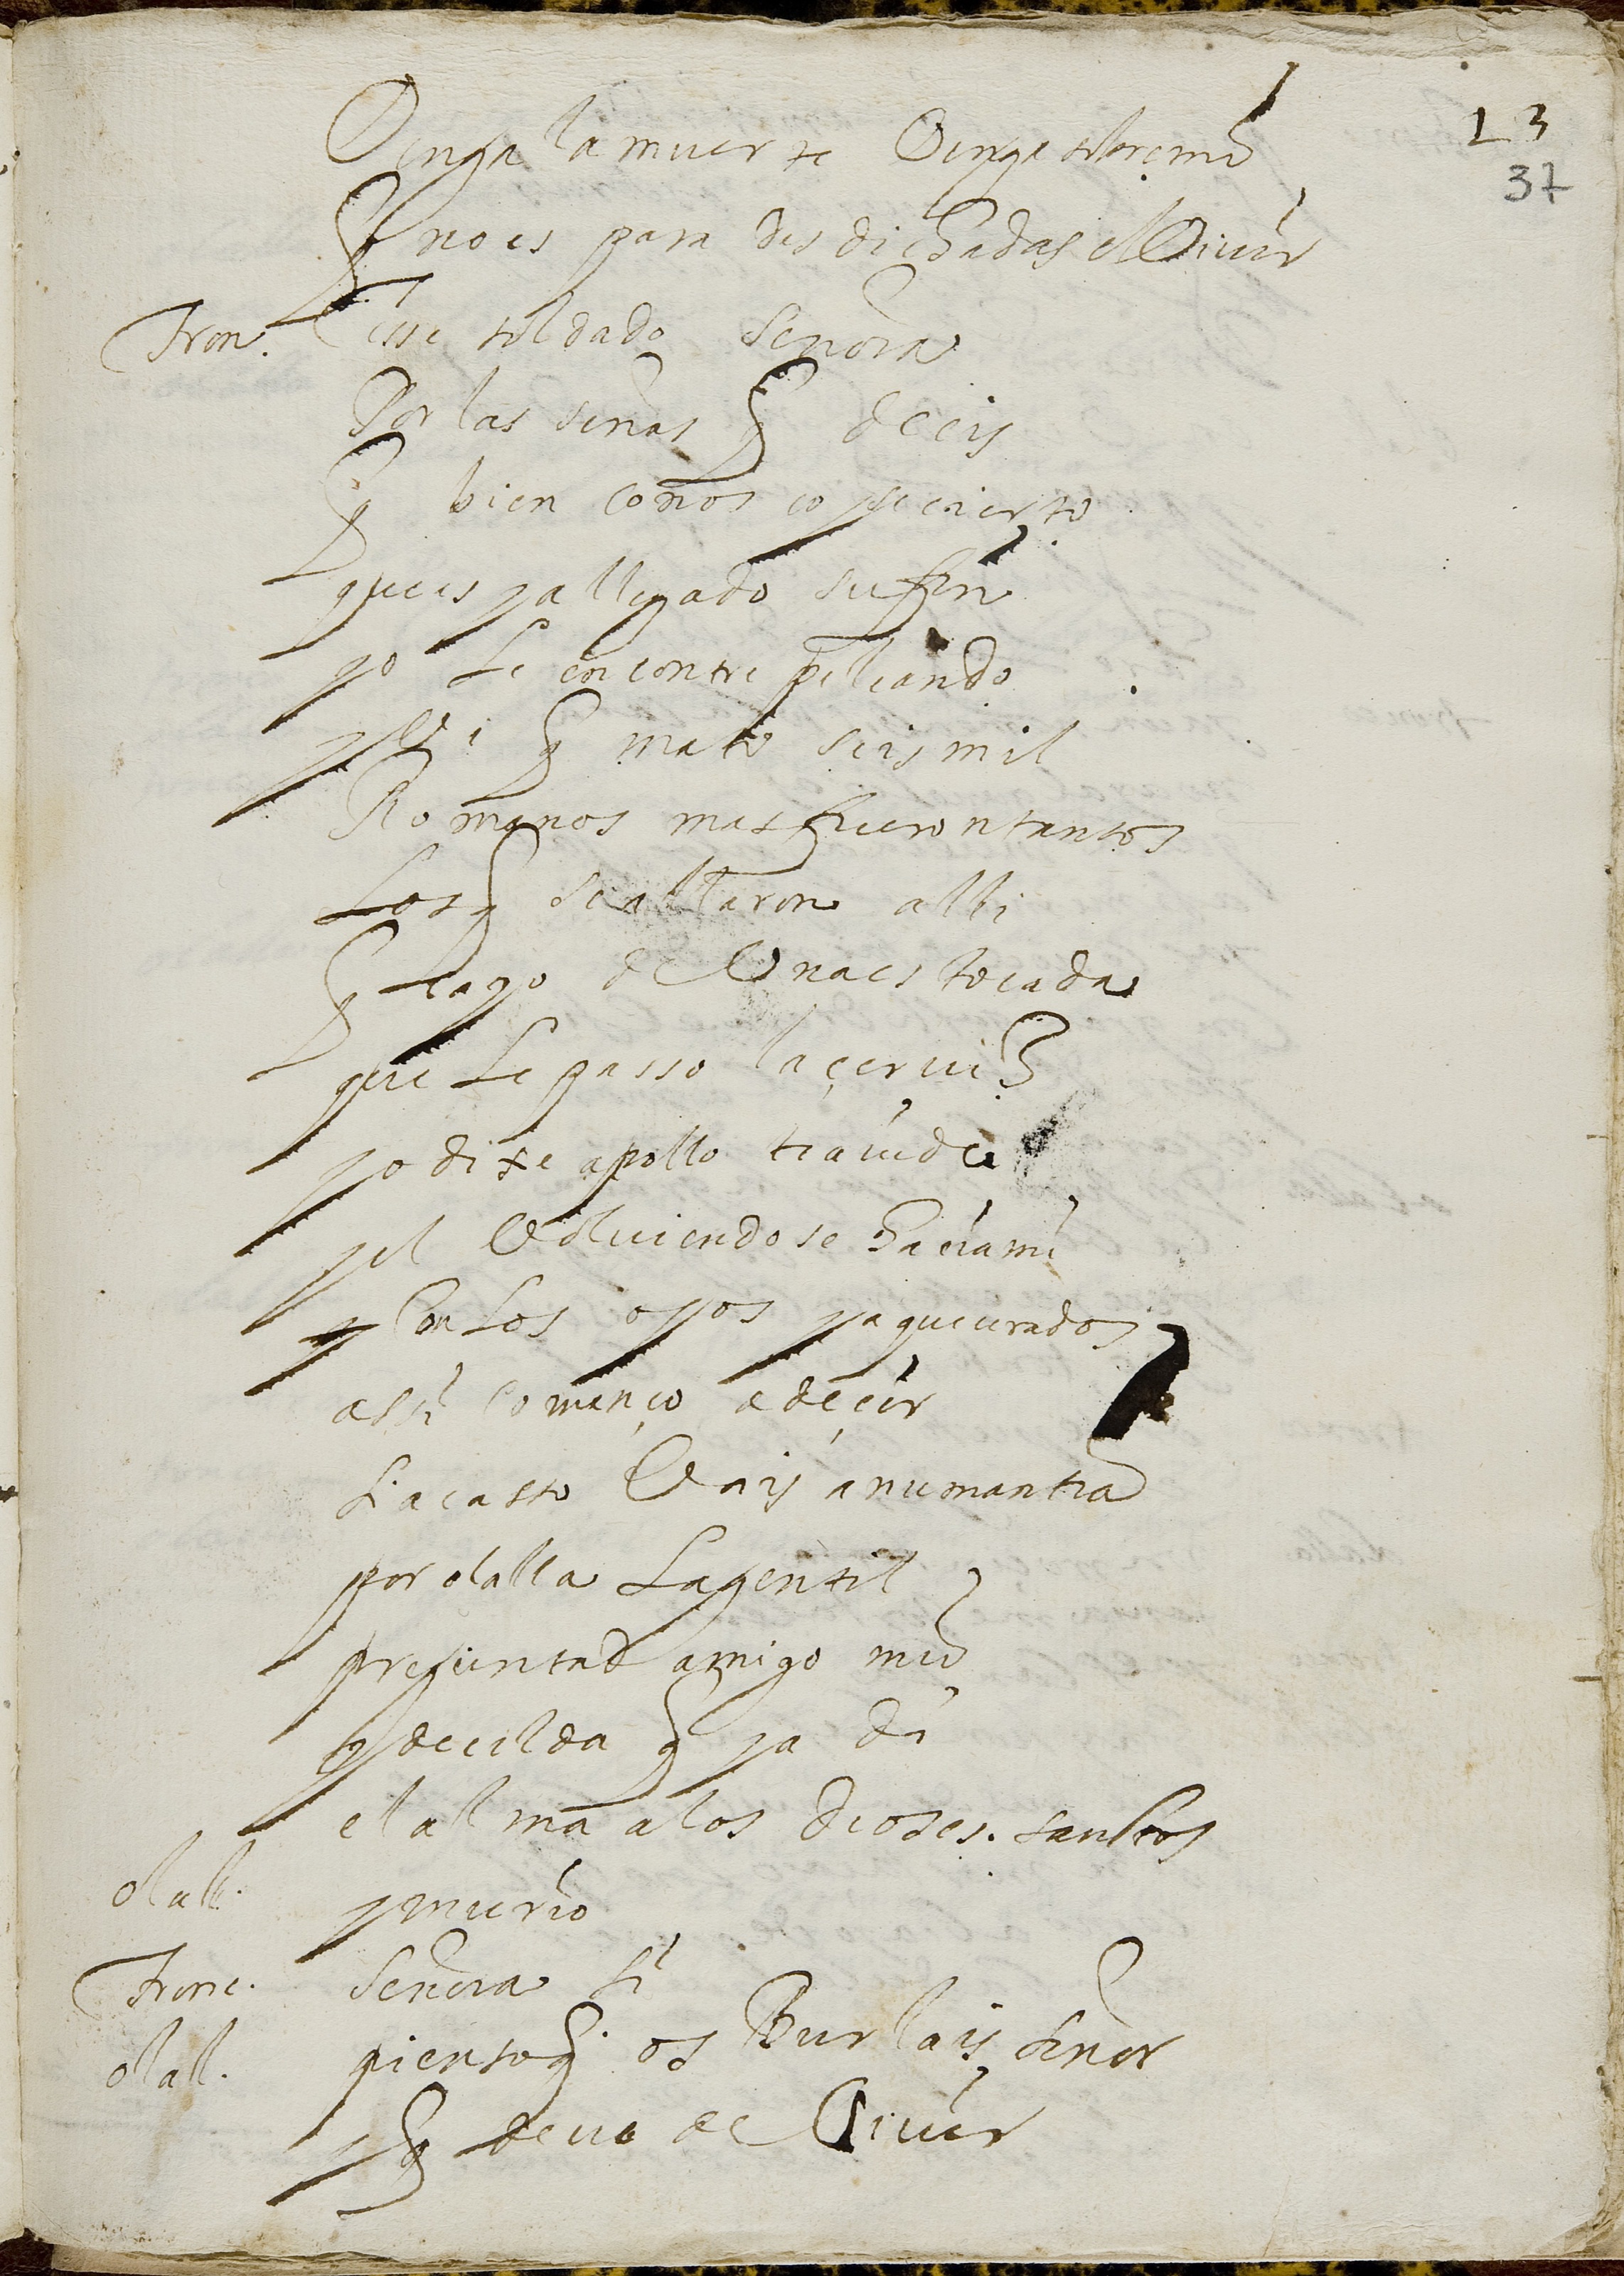 13
37
Venga la muerte Venga
q no es para desdichadas el Viuir
Tron. esse soldado Señora
Por las señas q decis
q bien conosco yse cierto
que es ya llegado su fin
yo Le encontre peleando
y Vi q mato seis mil
Romanos mas fueron tantos
Los q se allaron alli
q cayo de Vna estocada
que Le passo la çeruiz
yo dixe apollo te ayude
y el Volviendose hacia mi
y con Los ojos ya quebrados
assi començo a deçir
si acasso Vais a numantia
por olalla La gentil
preguntad amigo mio
y decilda q ya di
el allma a los dioses santos
olall. y murio
Trone. Señora si
olall. pienso q os Burlais señor
y q deue de Viuir